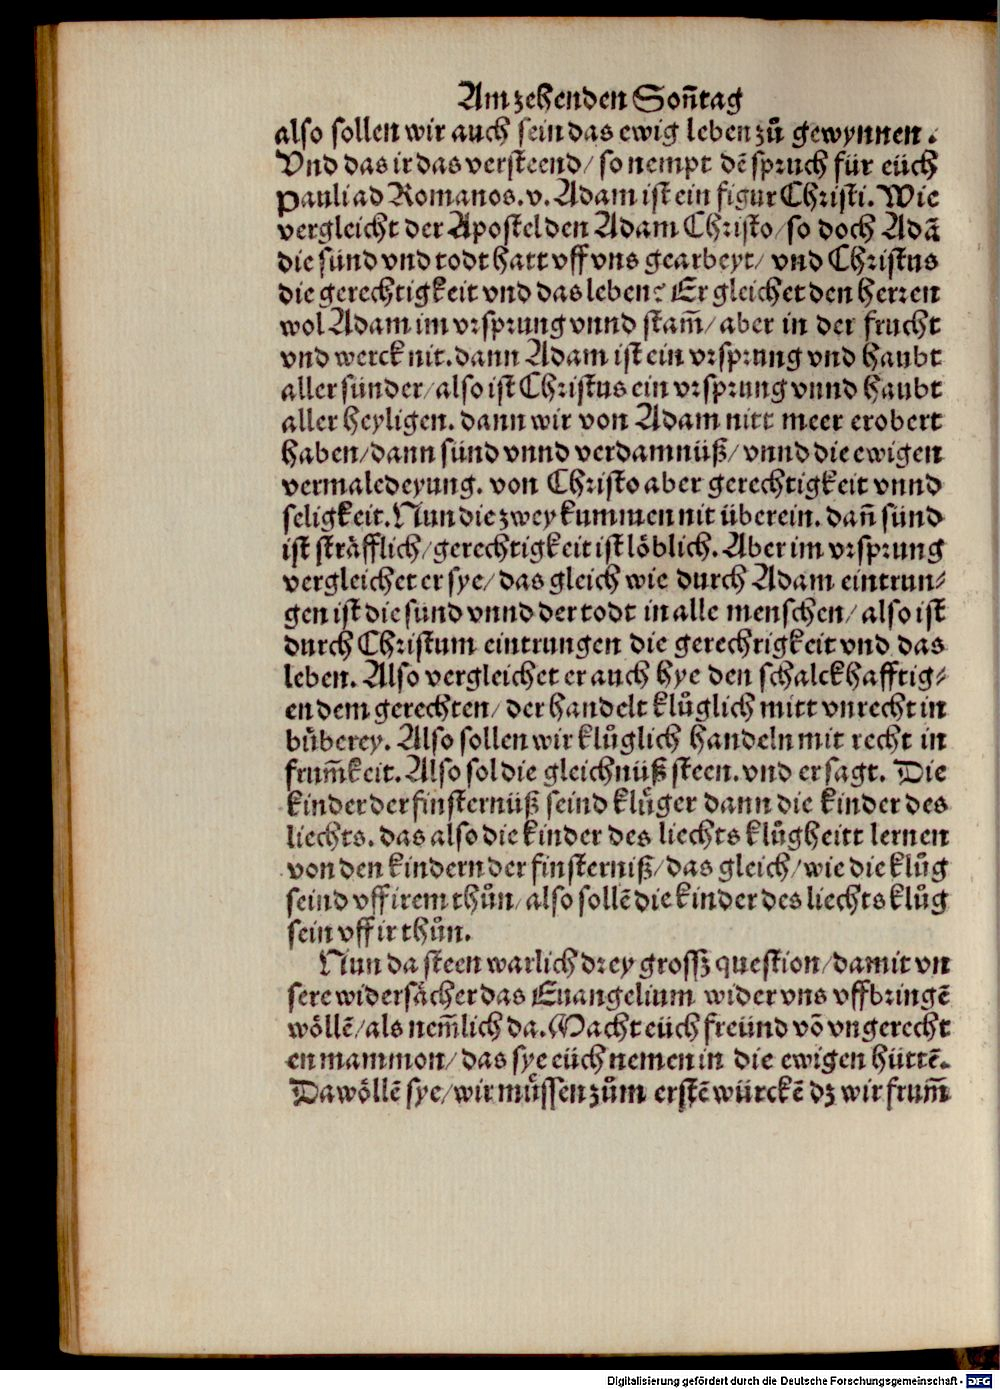 Am zehenden Soñtag
also sollen wir auch sein das ewig leben zů gewynnen.
Vnd das ir das versteend/ so nempt dē spruch für eüch
Pauli ad Romanos. v. Adam ist ein figur Christi. Wie
vergleicht der Apostel den Adam Christo/ so doch Adā
die sünd vnd todt hatt vff vns gearbeyt/ vnd Christus
die gerechtigkeit vnd das leben? Er gleichet den herren
wol Adam im vrsprung vnnd stam̄/ aber in der frucht
vnd werck nit. dann Adam ist ein vrsprung vnd haubt
aller sünder/ also ist Christus ein vrsprung vnnd haubt
aller heyligen. dann wir von Adam nitt meer erobert
haben/ dann sünd vnnd verdamnüß/ vnnd die ewigen
vermaledeyung. von Christo aber gerechtigkeit vnnd
seligkeit. Nun die zwey kummen nit überein. dañ sünd
ist sträfflich/ gerechtigkeit ist löblich. Aber im vrsprung
vergleichet er sye/ das gleich wie durch Adam eintrun⸗
gen ist die sünd vnnd der todt in alle menschen/ also ist
durch Christum eintrungen die gerechrigkeit vnd das
leben. Also vergleichet er auch hye den schalckhafftig⸗
en dem gerechten/ der handelt klůglich mitt vnrecht in
bůberey. Also sollen wir klůglich handeln mit recht in
frum̄keit. Also sol die gleichnüß steen. vnd er sagt. Die
kinder der finsternüß seind klůger dann die kinder des
liechts. das also die kinder des liechts klůgheitt lernen
von den kindern der finsterniß/ das gleich/ wie die klůg
seind vff irem thůn/ also sollē die kinder des liechts klůg
sein vff ir thůn.
Nun da steen warlich drey grossz question/ damit vn
sere widersächer das Euangelium wider vns vffbringē
wöllē/ als nem̄lich da. Macht eüch freünd vō vngerecht
en mammon/ das sye eüch nemen in die ewigen hüttē.
Da wöllē sye/ wir müssen zům erstē würckē dz wir frum̄
Digitalisierung gefördert durch die Deutsche Forschungsgemeinschaft - DFG